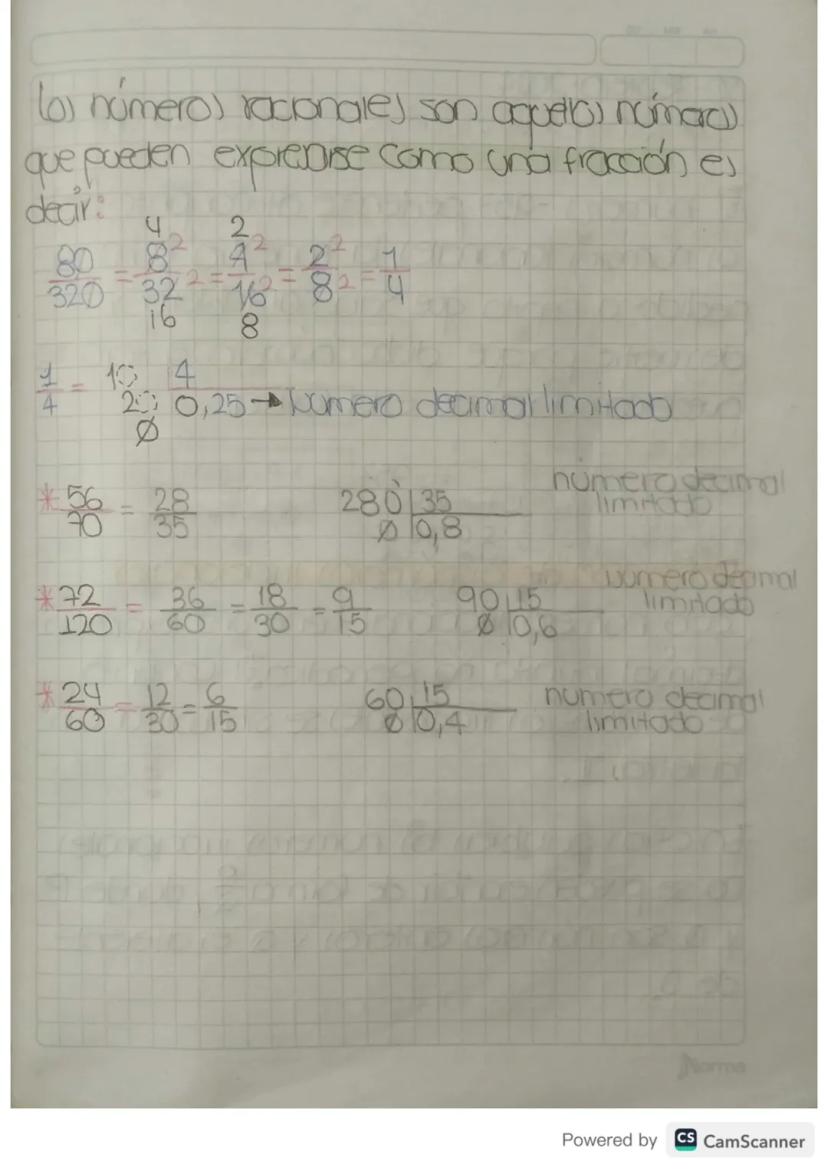 los números racionales son aquellos números
que pueden expresarse como una fracción es
decir:
80/320 = 8/32 = 4/16 = 2/8 = 1/4
4 2 2 2 2
2 2 2 2
16 8
1/4 = 10 4
20 0,25 → Numero decimal limitado
0
* 56/70 = 28/35 280 35 número decimal limitado
0 0,8
* 72/120 = 36/60 = 18/30 = 9/15 90 15 Numero decimal limitado
0 0,6
* 24/60 = 12/30 = 6/15 60 15 numero decimal limitado
0 0,4
Norma
Powered by CS CamScanner